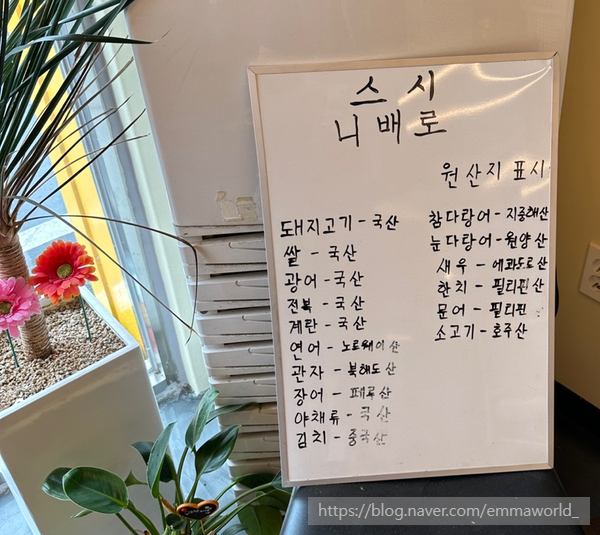 스시
니배로
원산지 표시
돼지고기 - 국산
쌀 - 국산
광어 - 국산
전복 - 국산
계란 - 국산
연어 - 노르웨이산
관자 - 북해도산
장어 - 페루산
야채류 - 국산
김치 - 중국산
참다랑어 - 지중해산
눈다랑어 - 원양산
새우 - 에콰도르산
한치 - 필리핀산
문어 - 필리핀
소고기 - 호주산
https://blog.naver.com/emmaworld_